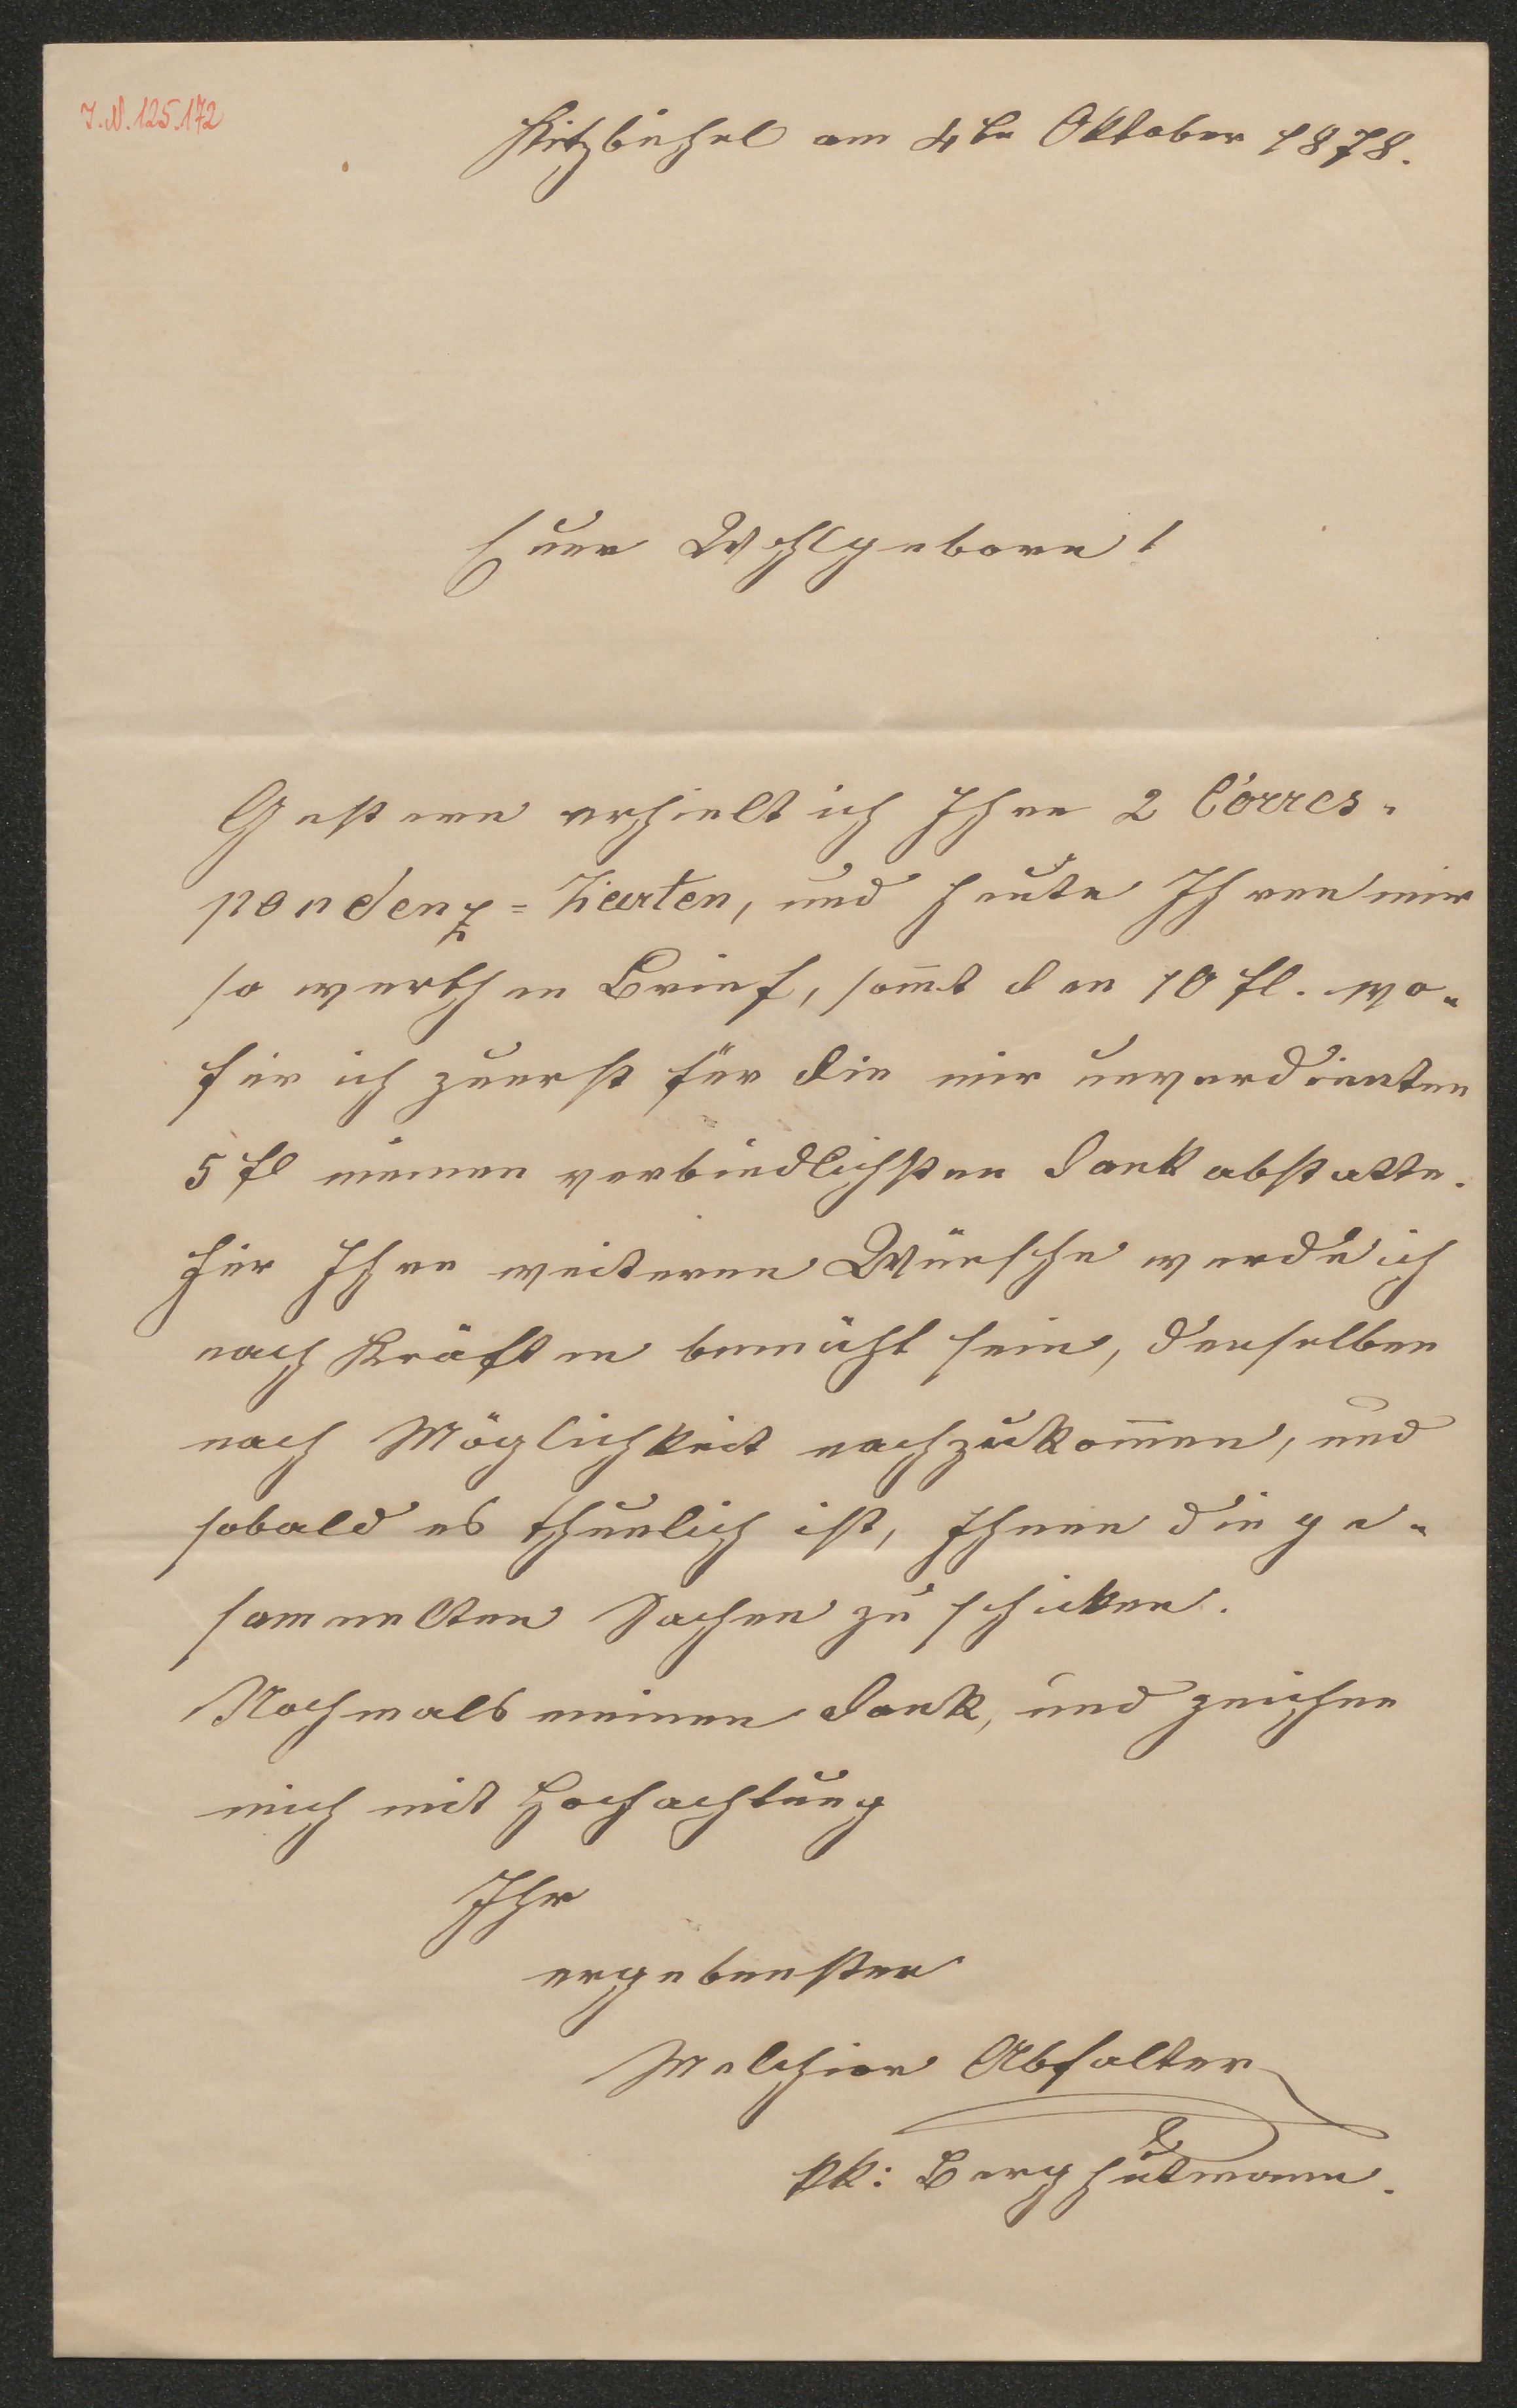 I.N. 125.172
Kitzbichel am 4tn Oktober 1878.
Euer Wohlgeborn!
Gestern erhielt ich Ihre 2 Corres-
pondenz=Karten, und heute Ihren mir
so werthen Brief, sam̄t den 10 fl. wo-
für ich zuerst für die mir unverdienten
5 fl meinen verbindlichsten Dank abstatte.
Für Ihre weiteren Wünsche werde ich
nach Kräften bemüht sein, denselben
nach Möglichkeit nachzukom̄en, und
sobald es thunlich ist, Ihnen die ge-
sammelten Sachen zu schicken.
Nochmals meinen Dank, und zeichne
mich mit Hochachtung
Ihr
ergebenster
Melchior Abfalter
kk: Berghutmann.